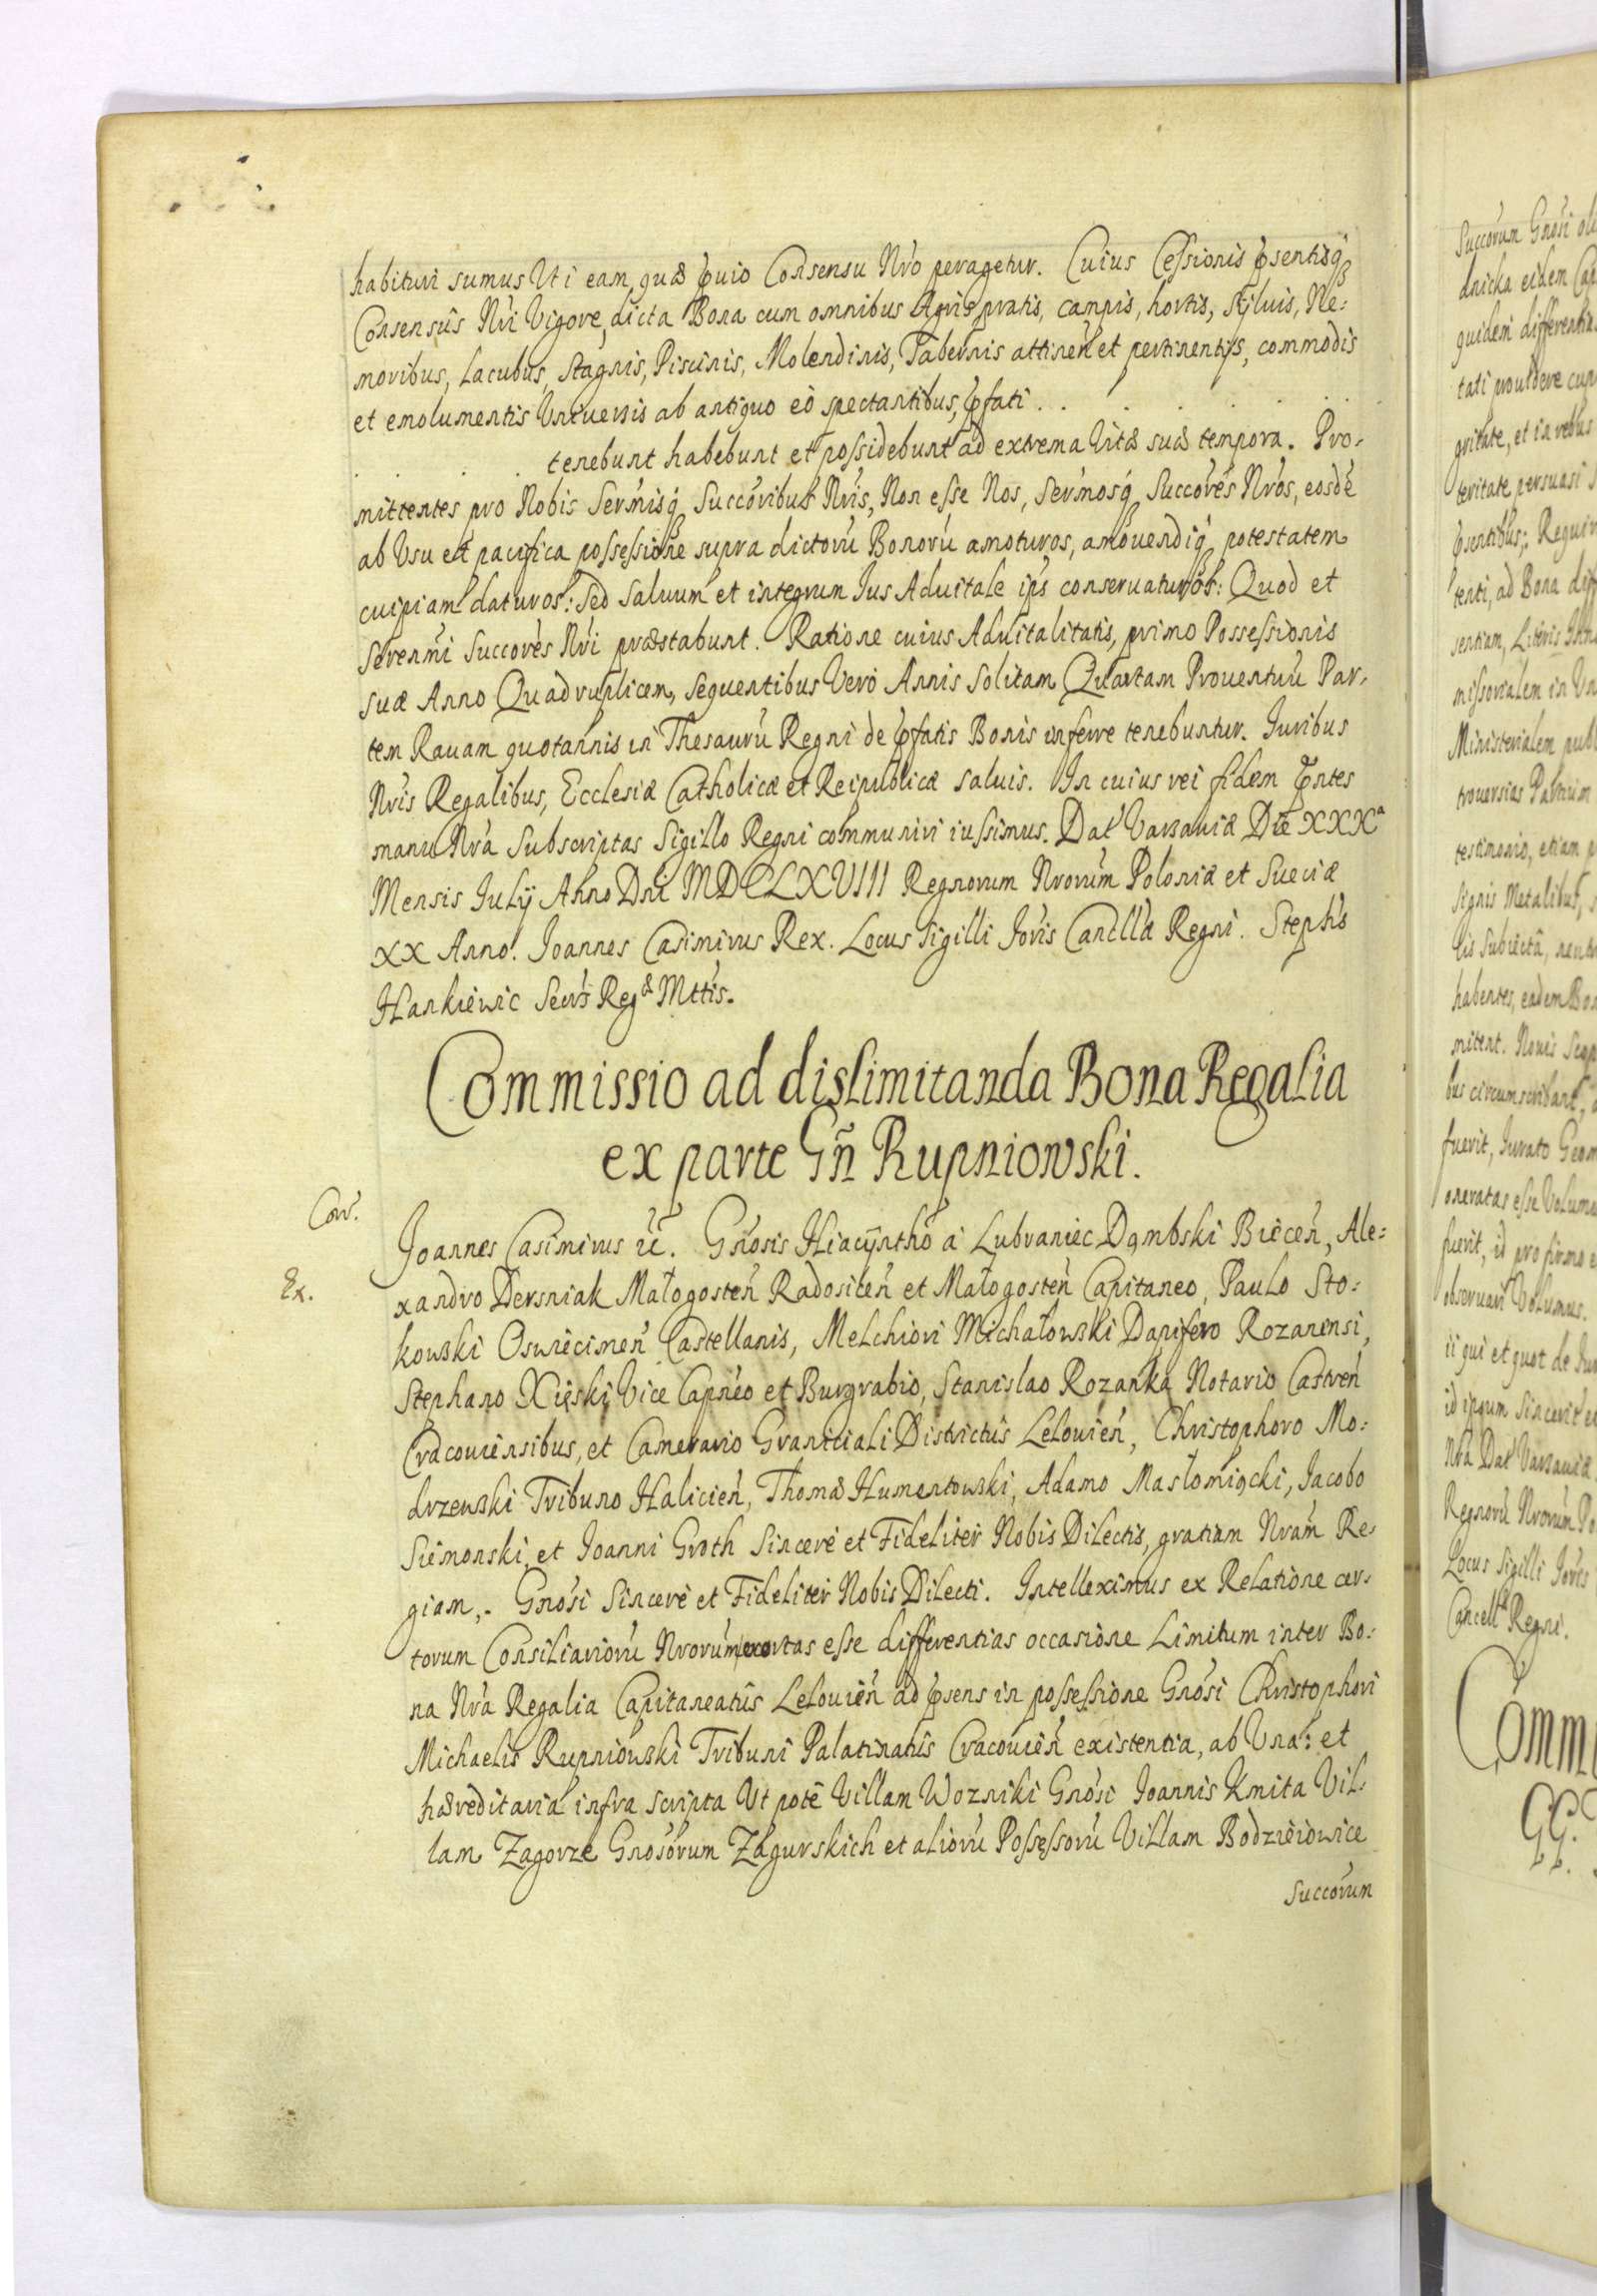 habituri sumus Uti eam quæ pvio Consensu Nro peragetur. Cuius Cessionis psentisq
Consensûs Nri Vigore, dicta Bona cum omnibus Agris pratis, campis, hortis, sylvis, Ne:
moribus, Lacubus, Stagnis, Piscinis, Molendinis, Tabernis attinen et pertinentijs, commodis
et emolumentis Universis ab antiquo eò spectantibus, pfati . . . . . . .
. . . tenebunt habebunt et possidebunt ad extrema Vitæ suæ tempora. Pro-
mittentes pro Nobis Sermisq Succoribus Nris, Non esse Nos, Sermosq Succores Nros, eosdē
ab Usu et pacifica possessione supra dictorū Bonorū amoturos, amovendiq potestatem
cuipiam daturos: Sed Salvum et integrum Jus Advitale ips conservaturos: Quod et
Serenmi Succores Nri præstabunt. Ratione cuius Advitalitatis, primo Possessionis
suæ Anno Quadruplicem, sequentibus Verò Annis solitam Quartam Proventuū Par-
tem Ravam quotannis in Thesaurū Regni de pfatis Bonis inferre tenebuntur. Juribus
Nris Regalibus, Ecclesiæ Catholicæ et Reipublicæ salvis. In cuius rei fidem pntes
manu Nrâ Subscriptas Sigillo Regni communiri iussimus. Dat Varsaviæ Die XXXa
Mensis July Anno Dni MDCLXVIII Regnorum Nrorum Poloniæ et Sueciæ
XX Anno. Joannes Casimirus Rex. Locus Sigilli Joris Cancllæ Regni. Stephs
Hankiewic Secrs Regæ Mttis.
Commissio ad dislimitanda Bona Regalia
ex parte Gñ Rupniowski.
Corr.
Joannes Casimirus etc. Gnosis Hiacyntho a Lubraniec Dąmbski Biecen, Ale:
Ex.
xandro Dersniak Małogosten Radosicen et Małogosten Capitaneo, Paulo Sto:
kowski Oswiecimen Castellanis, Melchiori Michałowski Dapifero Rozanensi,
Stephano Xięski Vice Capneo et Burgrabio, Stanislao Rozanka Notario Castren
Cracoviensibus, et Camerario Graniciali Districtûs Leloviēn, Christophoro Mo:
drzewski Tribuno Halicien, Thomæ Humentowski, Adamo Masłomięcki, Jacobo
Siemonski, et Joanni Groth Sincerè et Fideliter Nobis Dilectis, gratiam Nram Re-
giam,. Gnosi Sincerè et Fideliter Nobis Dilecti. Intelleximus ex Relatione cer-
torum Consiliariorū Nrorum exortas esse differentias occasione Limitum inter Bo:
na Nra Regalia Capitaneatûs Lelovien ad psens in possessione Gnosi Christophori
Michaelis Rupniowski Tribuni Palatinatûs Cracovien existentia, ab Una: et
hæreditaria infra scripta Ut potè Villam Wozniki Gnosi Joannis Kmita Vil-
lam Zagorze Gnosorum Zagurskich et aliorū Possessorū Villam Bodzieiowice
Succorum